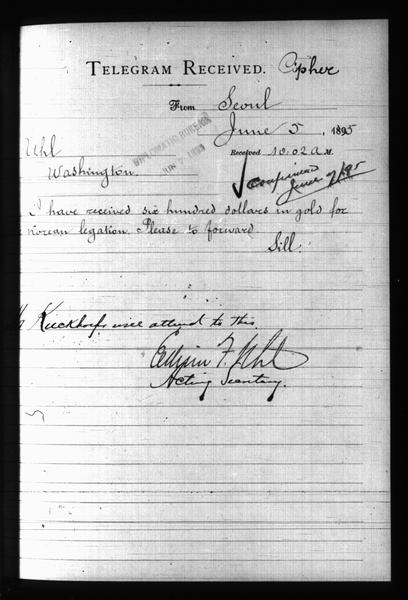 TELEGRAM RECEIVED. Cipher
From Seoul
June 5, 1895
Received 10:02 A M.
Uhl
Washington.
DIPLOMATIC BUREAU
JUN 7 1895
Confirmed
June 7/95
I have received six hundred dollars in gold for
Korean legation. Please to forward
Sill.
Kieckhoefer will attend to this.
Edwin F. Uhl
Acting Secretary.